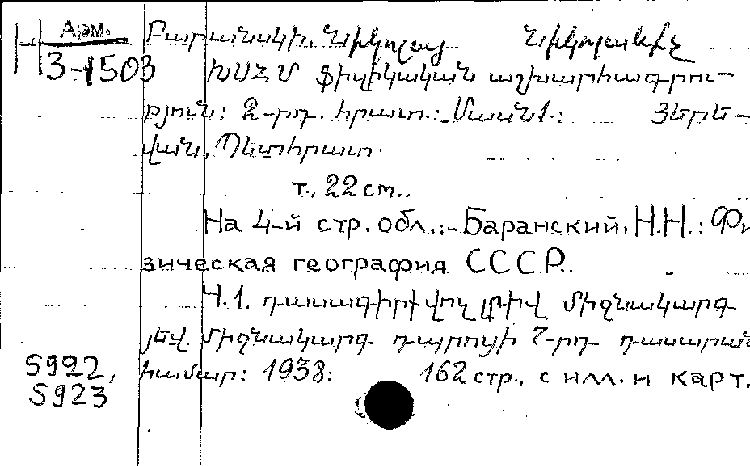 Арм. Բարանսկի, Նիկոլայ Նիկոլաևիչ
Н 3-1503 ԽՍՀՄ ֆիզիկական աշխարհագրու-
թյուն: 2-րդ. հրատ. Մասն 1.: Յերե-
վան, Պետհրատ.
т., 22 cm..
На 4-й стр. обл.: Баранский, Н.Н.: Фи
зическая география СССР.
Ч.1. դասագիրք վոչ լրիվ միջնակարգ
յեվ միջնակարգ դպրոցի 7-րդ դասարան
5922, համար: 1938: 162 стр., с илл. и карт.
5923